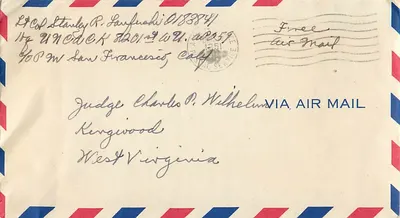 Lt Col Stanley R. O183841
Hq UNCACK 8201st AU. APO 59
c/o P M San Francisco, Calif
Free
Air Mail
Judge Charles P. Wilhelm
VIA AIR MAIL
Kingwood
West Virginia